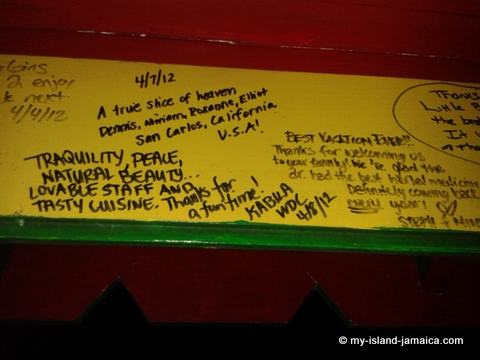 2 enjoy
next
4/4/12
4/7/12
A true slice of heaven
Dennis, Miriam, Roxanne, Elliot
San Carlos, California
U.S.A!
TRAQUILITY, PEACE,
NATURAL BEAUTY...
LOVABLE STAFF AND
TASTY CUISINE. Thanks for
a fun time!
KABILA
WDC
4/8/12
BEST VACATION EVER!!
Thanks for welcoming us
to your family! We're glad the
dr. had the best herbal medicine
Definitely coming back
EVERY year!
Thanks
Little
the be
It w
a tho
© my-island-jamaica.com